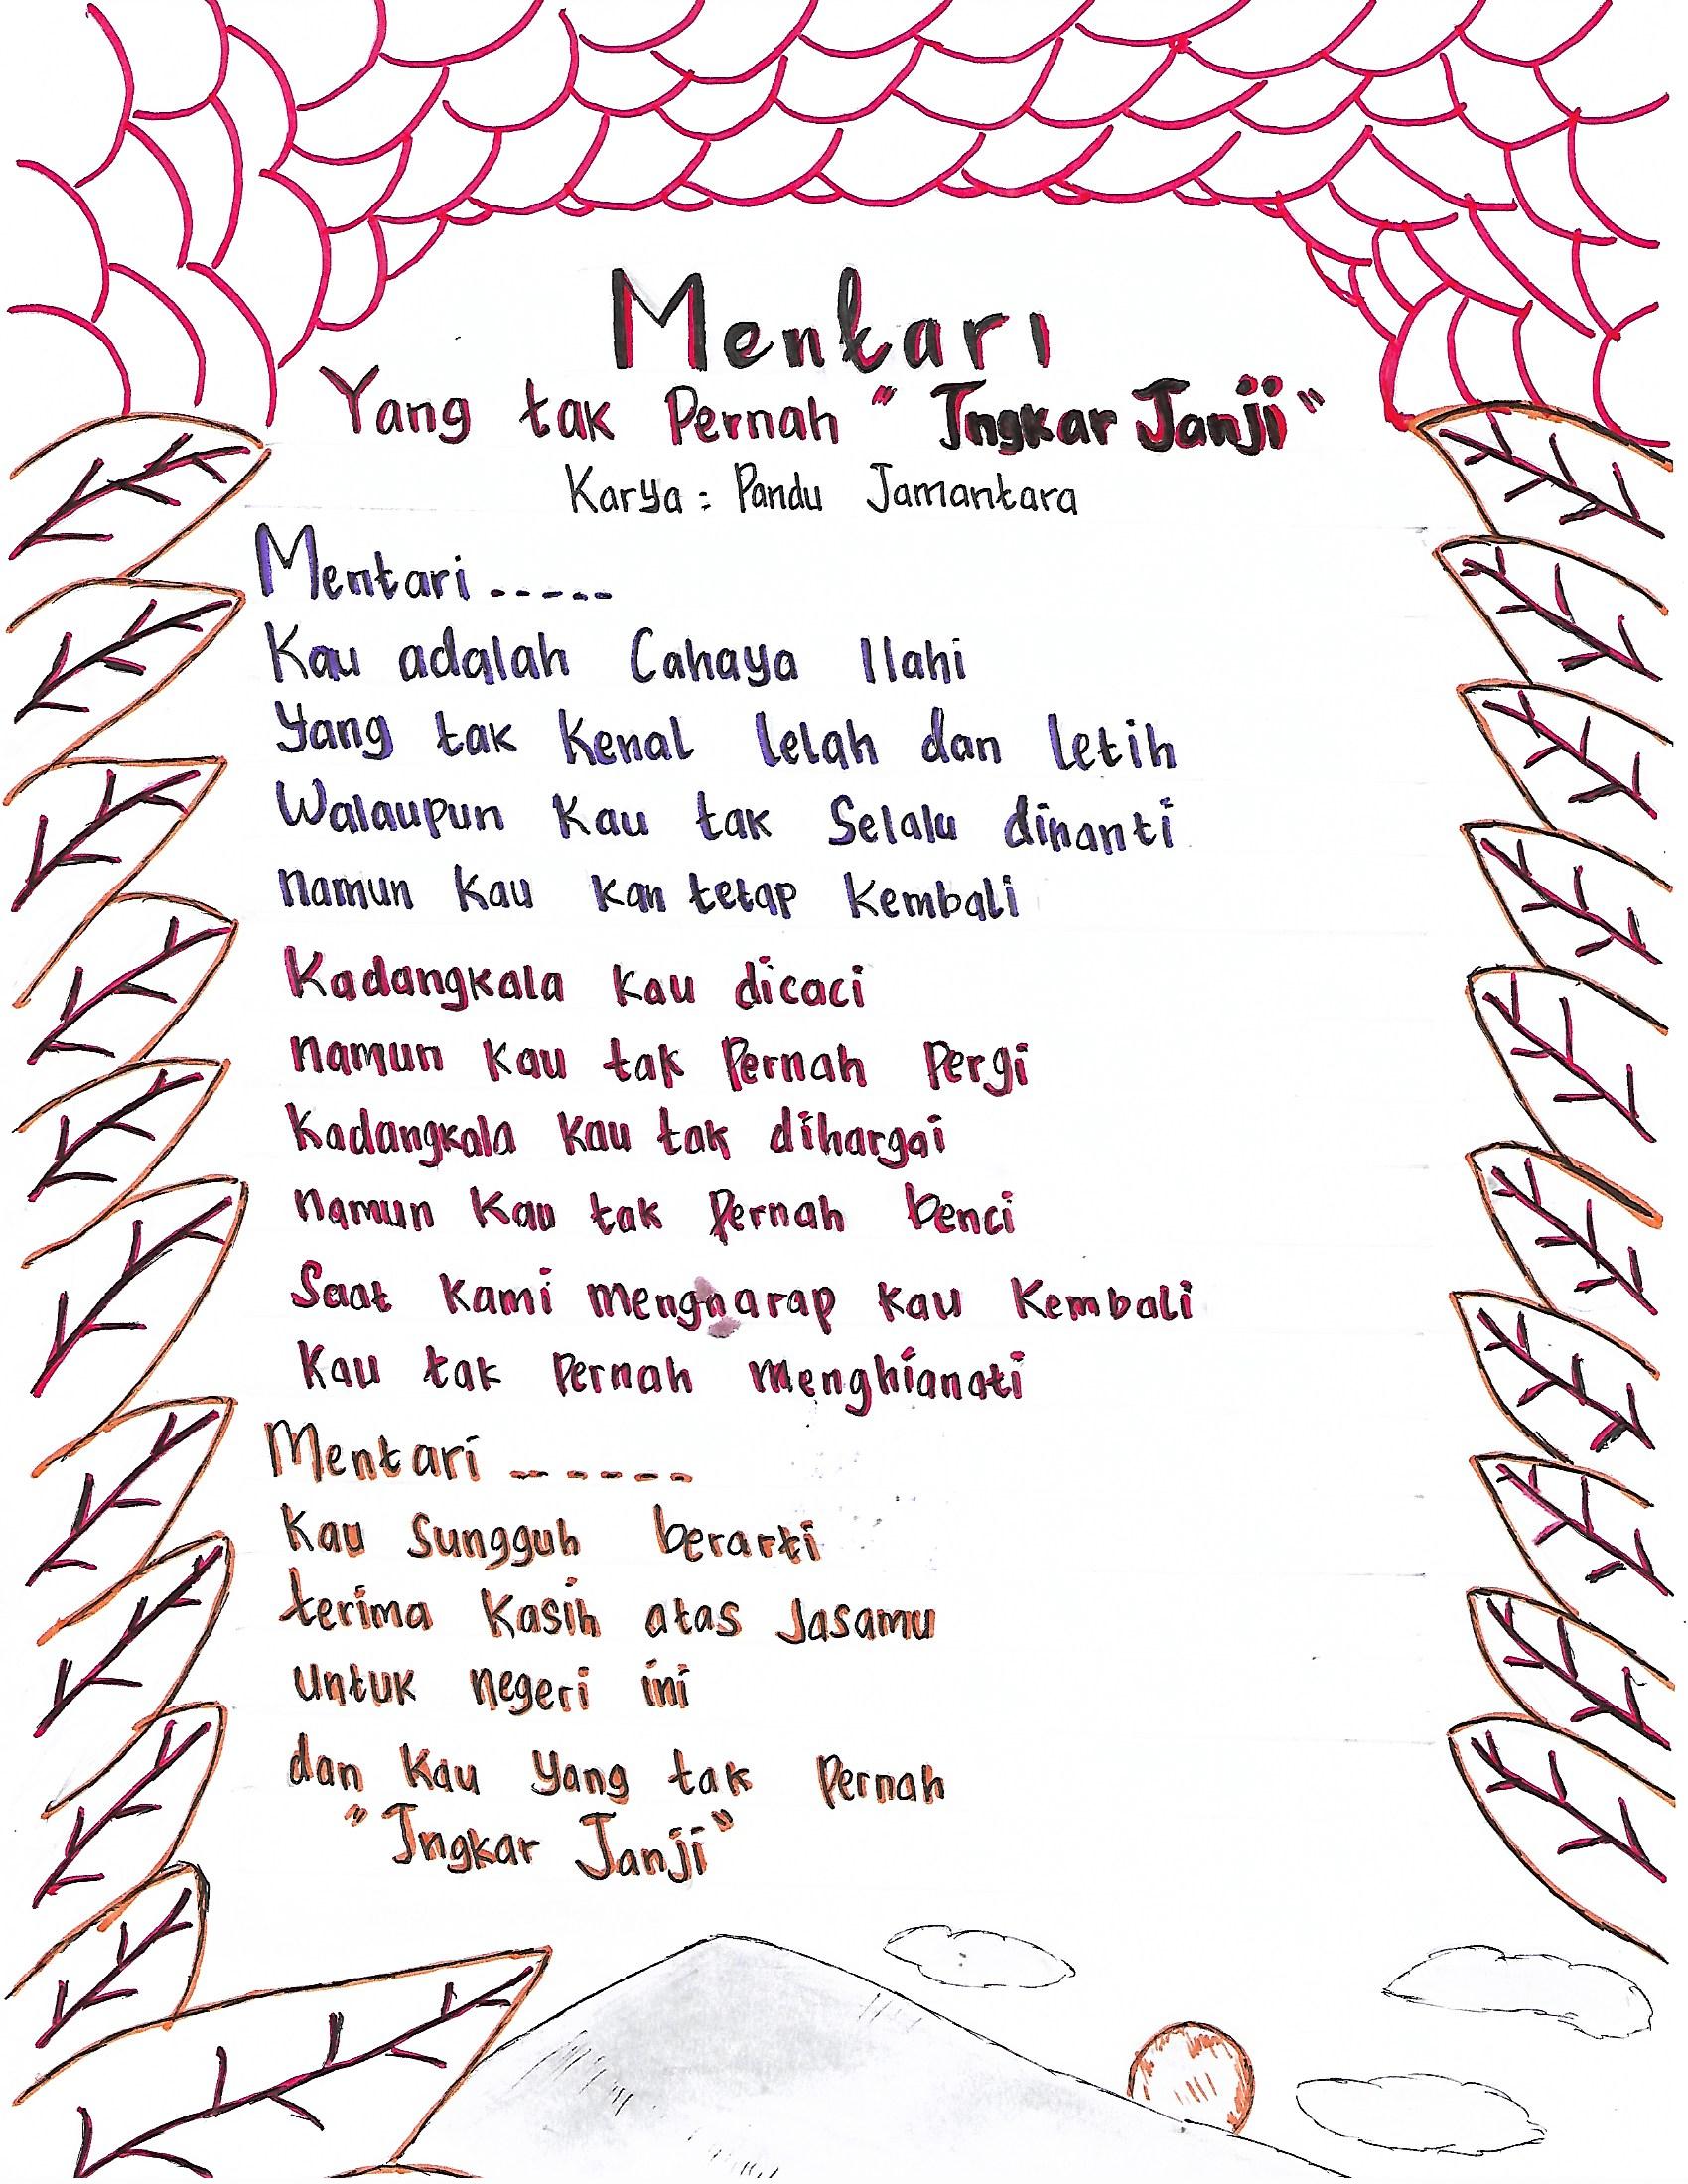 Mentari
Yang tak Pernah "Ingkar Janji"
Karya : Pandu Jamantara
Mentari -----
Kau adalah Cahaya Ilahi
Yang tak Kenal lelah dan letih
Walaupun Kau tak Selalu dinanti
namun Kau kan tetap Kembali
Kadangkala kau dicaci
namun Kau tak Pernah Pergi
Kadangkala Kau tak dihargai
namun Kau tak Pernah benci
Saat Kami mengharap kau Kembali
Kau tak Pernah menghianati
Mentari ------
Kau Sungguh berarti
terima Kasih atas Jasamu
untuk negeri ini
dan Kau Yang tak Pernah
"Ingkar Janji"